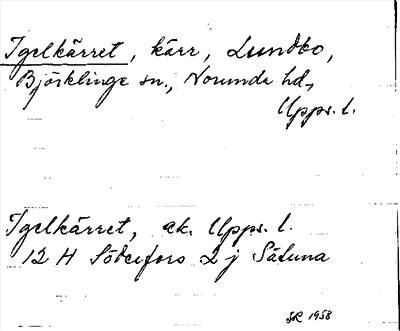 Igelkärret, kärr, Lundbo,
Björklinge sn., Norunda hd,
Upps. l.
Igelkärret, ak. Upps. l.
12 H Söderfors 2 j Sätuna
SR 1958